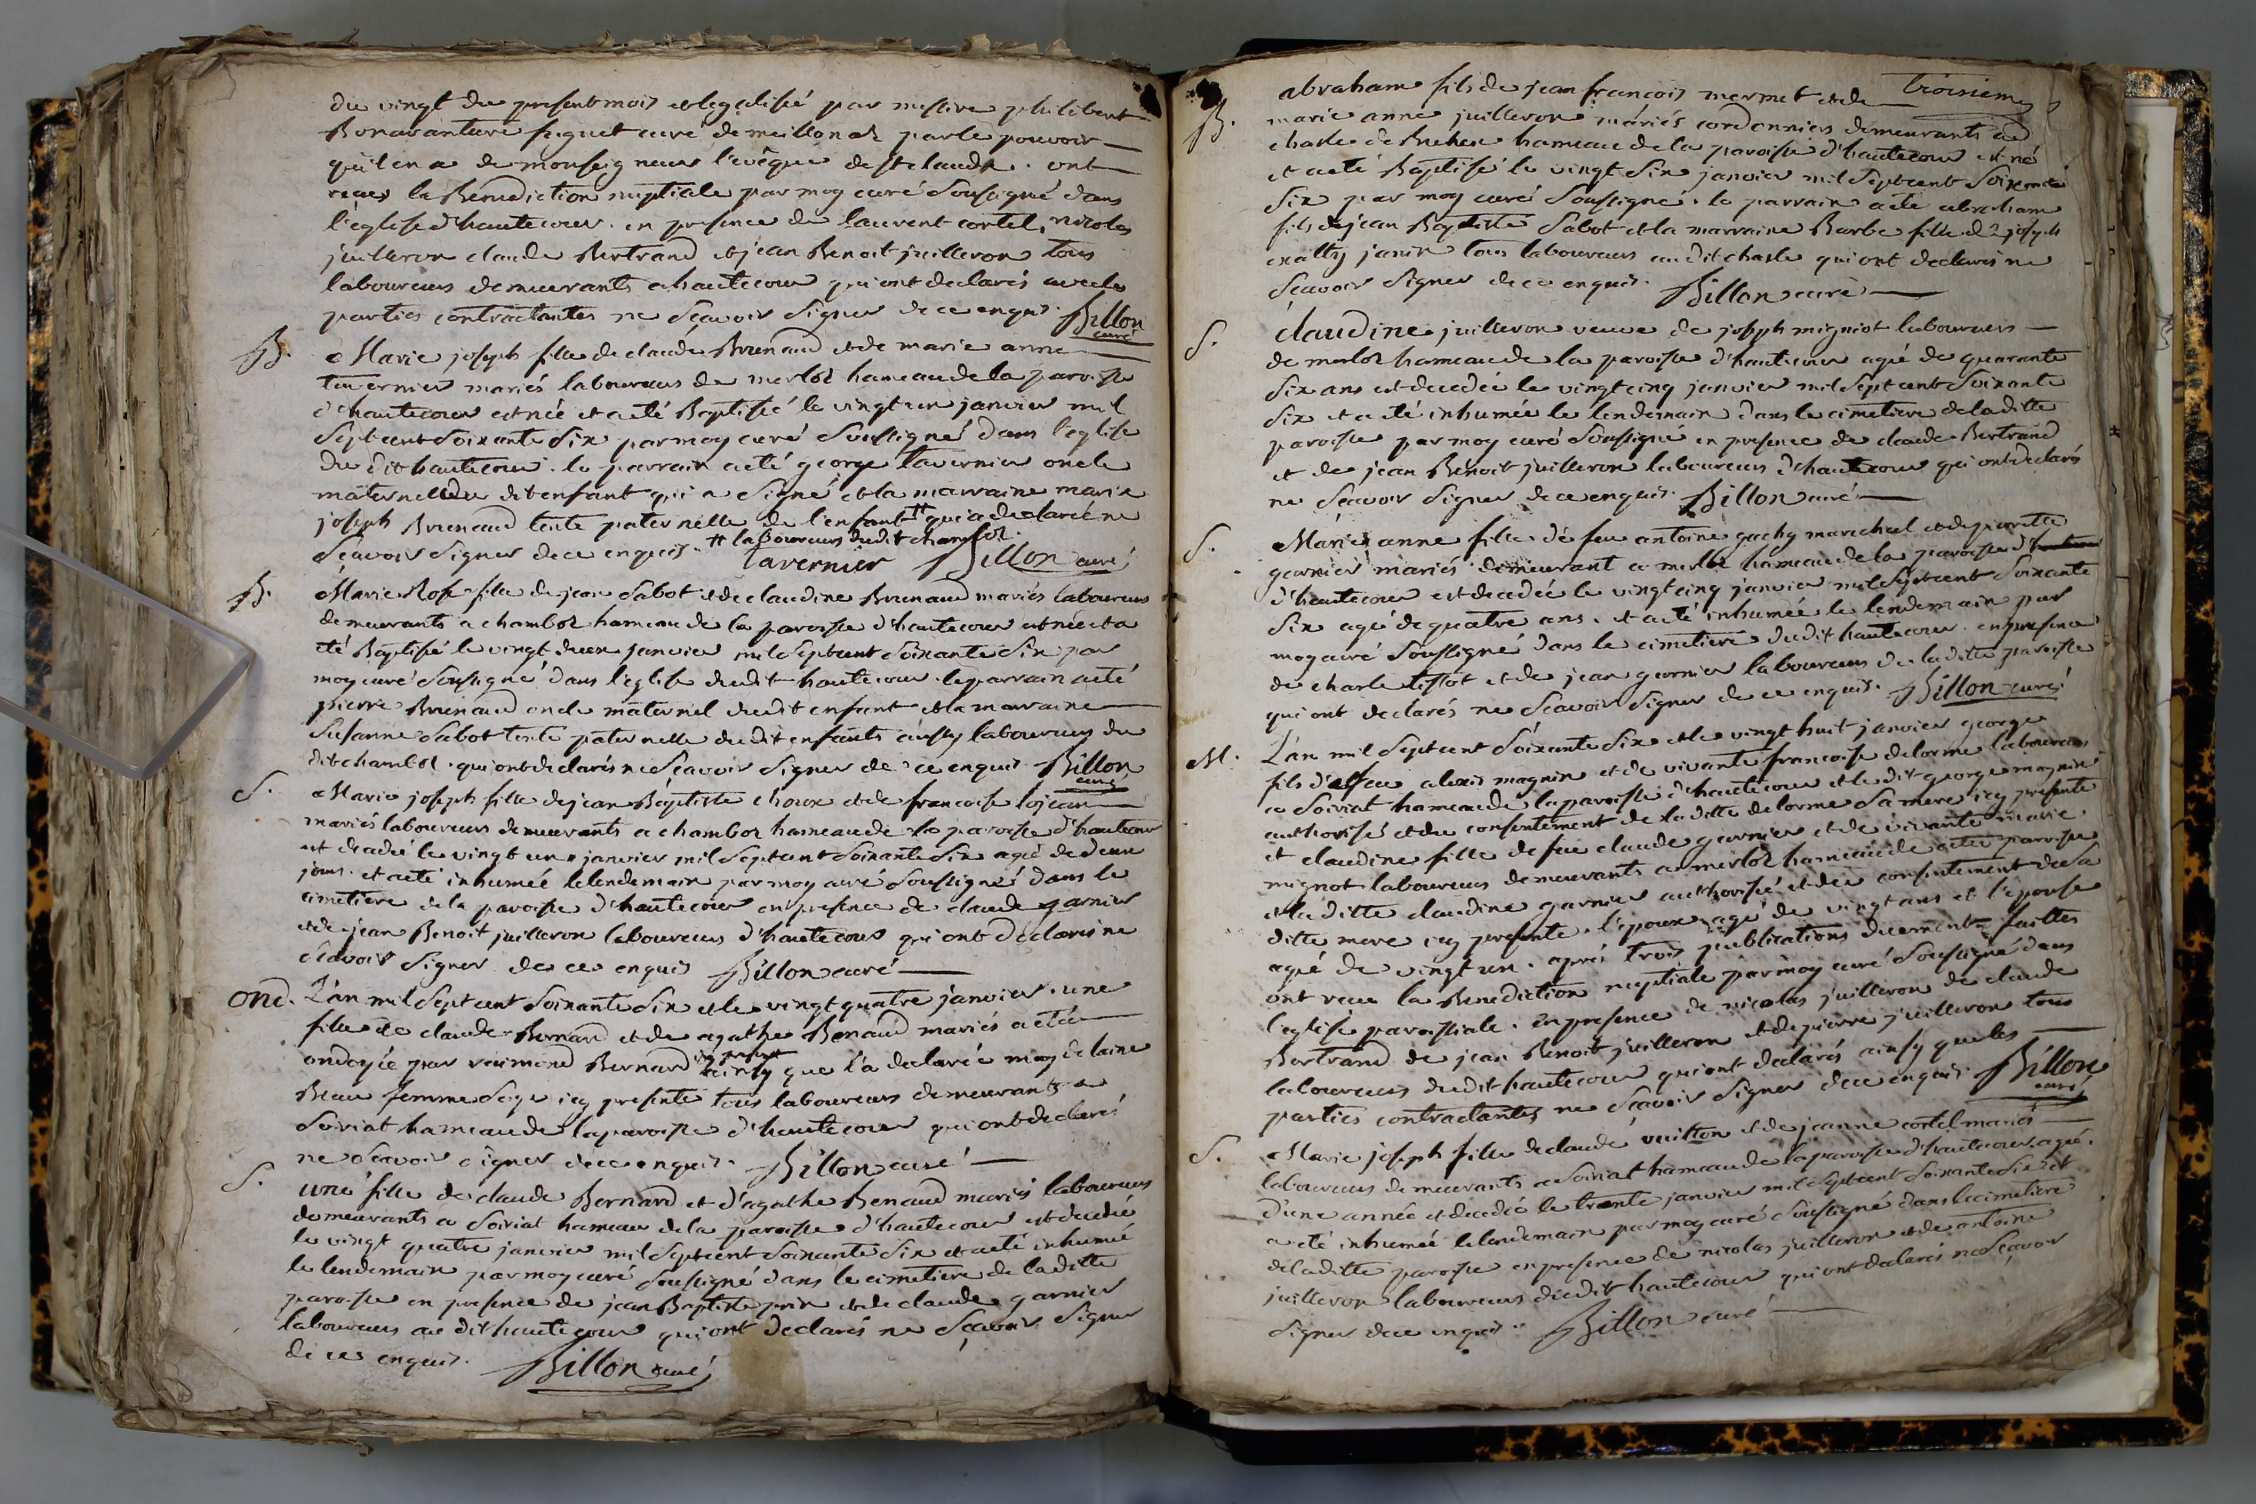 du vingt du present mois et legalisé par messire philibert
Bonavanture figuet curé de meillonas par le pouvoir
qu'il en a de monseigneur l'evêque de st claude. ont
receu la Benediction nuptiale par moy curé soussigné dans
l'eglise d'hautecour. en presence de laurent cortel, nicolas
juilleron claude Bertrand et jean Benoit juilleron tous
laboureurs demeurants a hautecour qui ont declarés avec les
parties contractantes ne sçavoir signer de ce enquis. Billon
curé
B. Marie joseph fille de claude Brunaud et de marie anne
tavernier mariés laboureurs de merloz hameau de la paroisse
d'hautecour est née et a eté Baptisé le vingt un janvier mil
sept cent soixante six par moy curé soussigné dans l'eglise
du dit hautecour. le parrain a eté george tavernier oncle
maternel du dit enfant qui a signé et la marraine marie
joseph Brunaud tente paternelle de l'enfant # qui a declarée ne
sçavoir signer de ce enquis. # laboureurs dudit chambod.
tavernier Billon curé
B. Marie Rose fille de jean Sabot et de claudine Brunaud mariés laboureurs
demeurants a chambod hameau de la paroisse d'hautecour est née et a
eté Baptisé le vingt deux janvier mil sept cent soixante six par
moy curé soussigné dans l'eglise dudit hautecour. le parrain a eté
pierre Brunaud oncle maternel dudit enfant et la marraine
Susanne Sabot tente paternelle dudit enfants ainsy laboureurs du
dit chambod. qui ont declarés ne sçavoir signer de ce enquis Billon
curé
S. Marie joseph fille de jean Baptiste choux et de francoise lojean
mariés laboureurs demeurants a chambod hameau de la paroisse d'hautecour
est decedé le vingt un janvier mil sept cent soixante six agé de deux
jours. et a eté inhumée le lendemain par moy curé soussigné dans le
cimetiere de la paroisse d'hautecour en presence de claude garnier
et de jean Benoit juilleron laboureurs d'hautecour qui ont declarés ne
sçavoir signer de ce enquis Billon curé
Ond. L'an mil sept cent soixante six et le vingt quatre janvier. une
fille de claude Bernard et de agathe Benaud mariés a eté
ondoyée par raimond Bernard icy present ainsy que l'a declarée magdelaine
Beau femme sage icy presente tous laboureurs demeurants a
Soiriat hameau de la paroisse d'hautecour qui ont declarés
ne sçavoir signer de ce enquis. Billon curé
S. une fille de claude Bernard et d'agathe Benaud mariés laboureurs
demeurants a Soiriat hameau de la paroisse d'hautecour est decedé
le vingt quatre janvier mil sept cent soixante six et a eté inhumé
le lendemain par moy curé soussigné dans le cimetiere de la ditte
paroisse en presence de jean Baptiste prin et de claude garnier
laboureurs au dit hautecour qui ont declarés ne sçavoir signer
de ce enquis. Billon curé
troisieme
B. abraham fils de jean francois mermet et de
marie anne juilleron mariés cordonniers demeurants au
charle de Buhen hameau de la paroisse d'hautecour est né
et a eté Baptisé le vingt six janvier mil sept cent soixante
six par moy curé soussigné. le parrain a eté abraham
fils de jean Baptiste Sabot et la marraine Barbe fille de joseph
janin tous laboureurs au dit charle qui ont declarés ne
sçavoir signer de ce enquis. Billon curé
S. claudine juilleron veuve de joseph migniot laboureurs
de merloz hameau de la paroisse d'hautecour agé de quarante
six ans est decedée le vingt cinq janvier mil sept cent soixante
six et a eté inhumée le lendemain dans le cimetiere de la ditte
paroisse par moy curé soussigné en presence de claude Bertrand
et de jean Benoit juilleron laboureurs d'hautecour qui ont declarés
ne sçavoir signer de ce enquis. Billon curé
S. Marie anne fille de feu antoine gachy marechal et de pierrette
garnier mariés demeurant a merloz hameau de la paroisse
d'hautecour est decedée le vingt cinq janvier mil sept cent soixante
six agé de quatre ans. et a eté inhumée le lendemain par
moy curé soussigné dans le cimetiere dudit hautecour. en presence
de charle tissot et de jean garnier laboureurs de la ditte paroisse
qui ont declarés ne sçavoir signer de ce enquis. Billon curé
M. L'an mil sept cent soixante six et le vingt huit janvier george
fils de feu alexis magnin et de vivante francoise delorme laboureurs
a Soiriat hameau de la paroisse d'hautecour et le dit george magnin
authorisés et du consentement de la ditte delorme sa mere icy presente
et claudine fille de feu claude garnier et de vivante marie
mignot laboureurs demeurants a merloz hameau de cette paroisse
et la ditte claudine garnier authorisé et du consentement de sa
ditte mere icy presente. l'epoux agé de vingt ans et l'epouse
agé de vingt un. aprés trois publications duement faittes
ont receu la Benediction nuptiale par moy curé soussigné dans
l'eglise paroissiale. en presence de nicolas juilleron de claude
Bertrand de jean Benoit juilleron et de pierre juilleron tous
laboureurs dudit hautecour qui ont declarés ainsy que les
parties contractantes ne sçavoir signer de ce enquis. Billon
curé
S. Marie joseph fille de claude vuitton et de jeanne cortel mariés
laboureurs demeurants a Soiriat hameau de la paroisse d'hautecour agé
d'une année est decedé le trente janvier mil sept cent soixante six et
a eté inhumée le lendemain par moy curé soussigné dans le cimetiere
de la ditte paroisse en presence de nicolas juilleron et de antoine
juilleron laboureurs dudit hautecour qui ont declarés ne sçavoir
signer de ce enquis. Billon curé